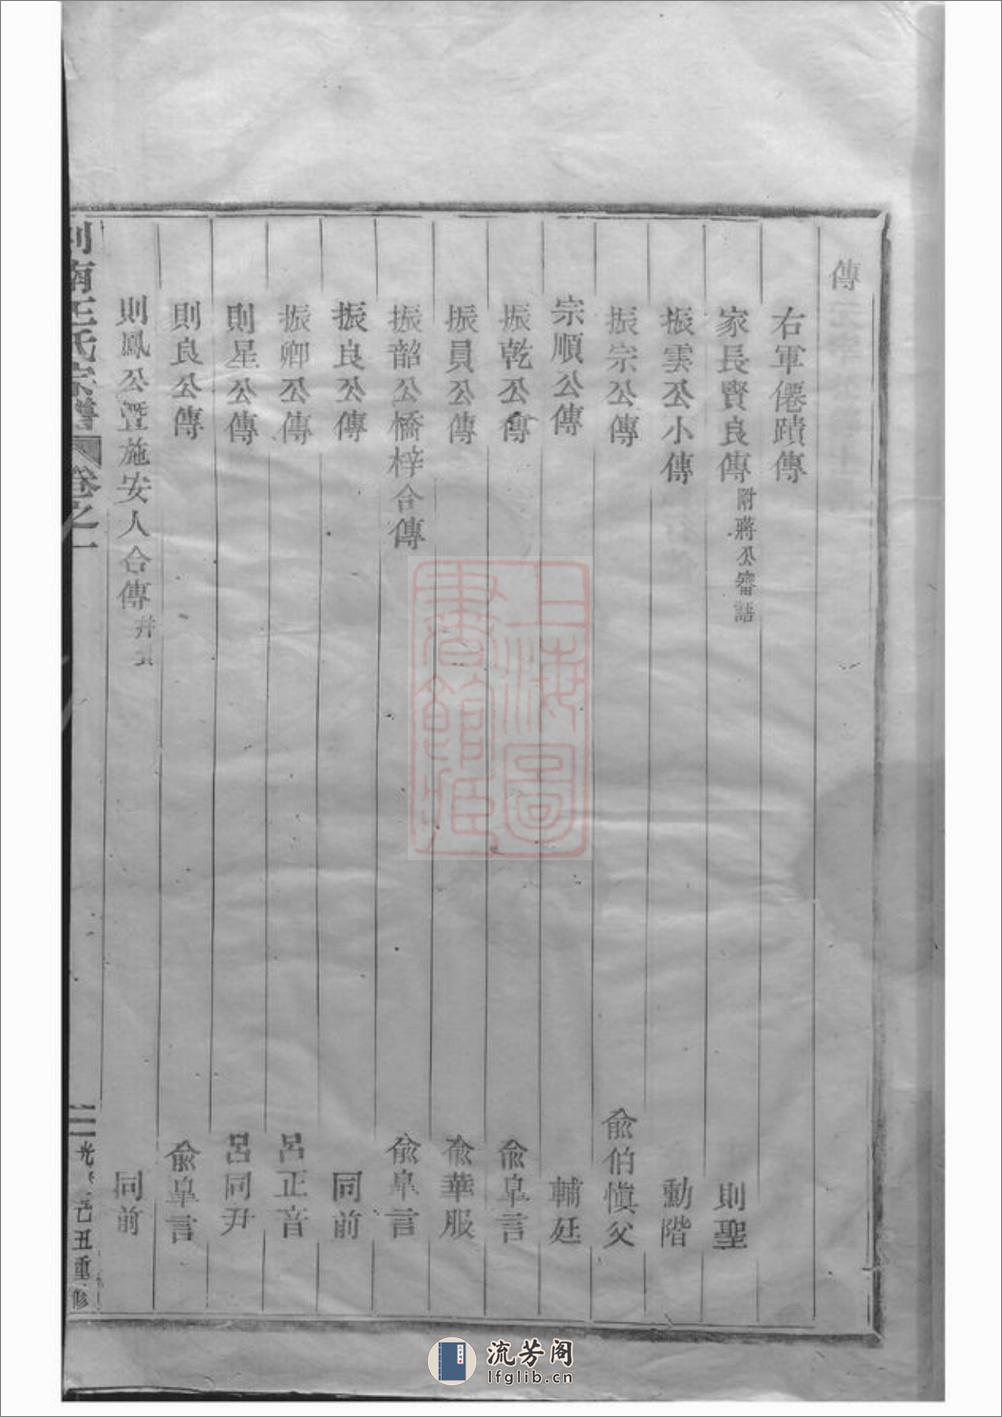 傳
右軍僊蹟傳
家長賢良傳 附蔣公審語 則聖
振雲公小傳 勳階
振宗公傳 俞伯愼父
宗順公傳 輔廷
振乾公傳 俞臯言
振員公傳 俞華服
振韶公橋梓合傳 俞臯言
振良公傳 同前
振卿公傳 呂正音
則星公傳 呂同升
則良公傳 俞臯言
則鳳公曁施安人合傳 幷 同前
南王氏宗譜 卷之一 二 光 己丑重修
上海圖書館藏
流芳阁
lfglib.cn